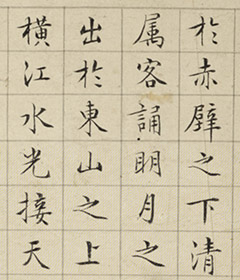 於赤壁之下清
属客誦明月之
出於東山之上
橫江水光接天